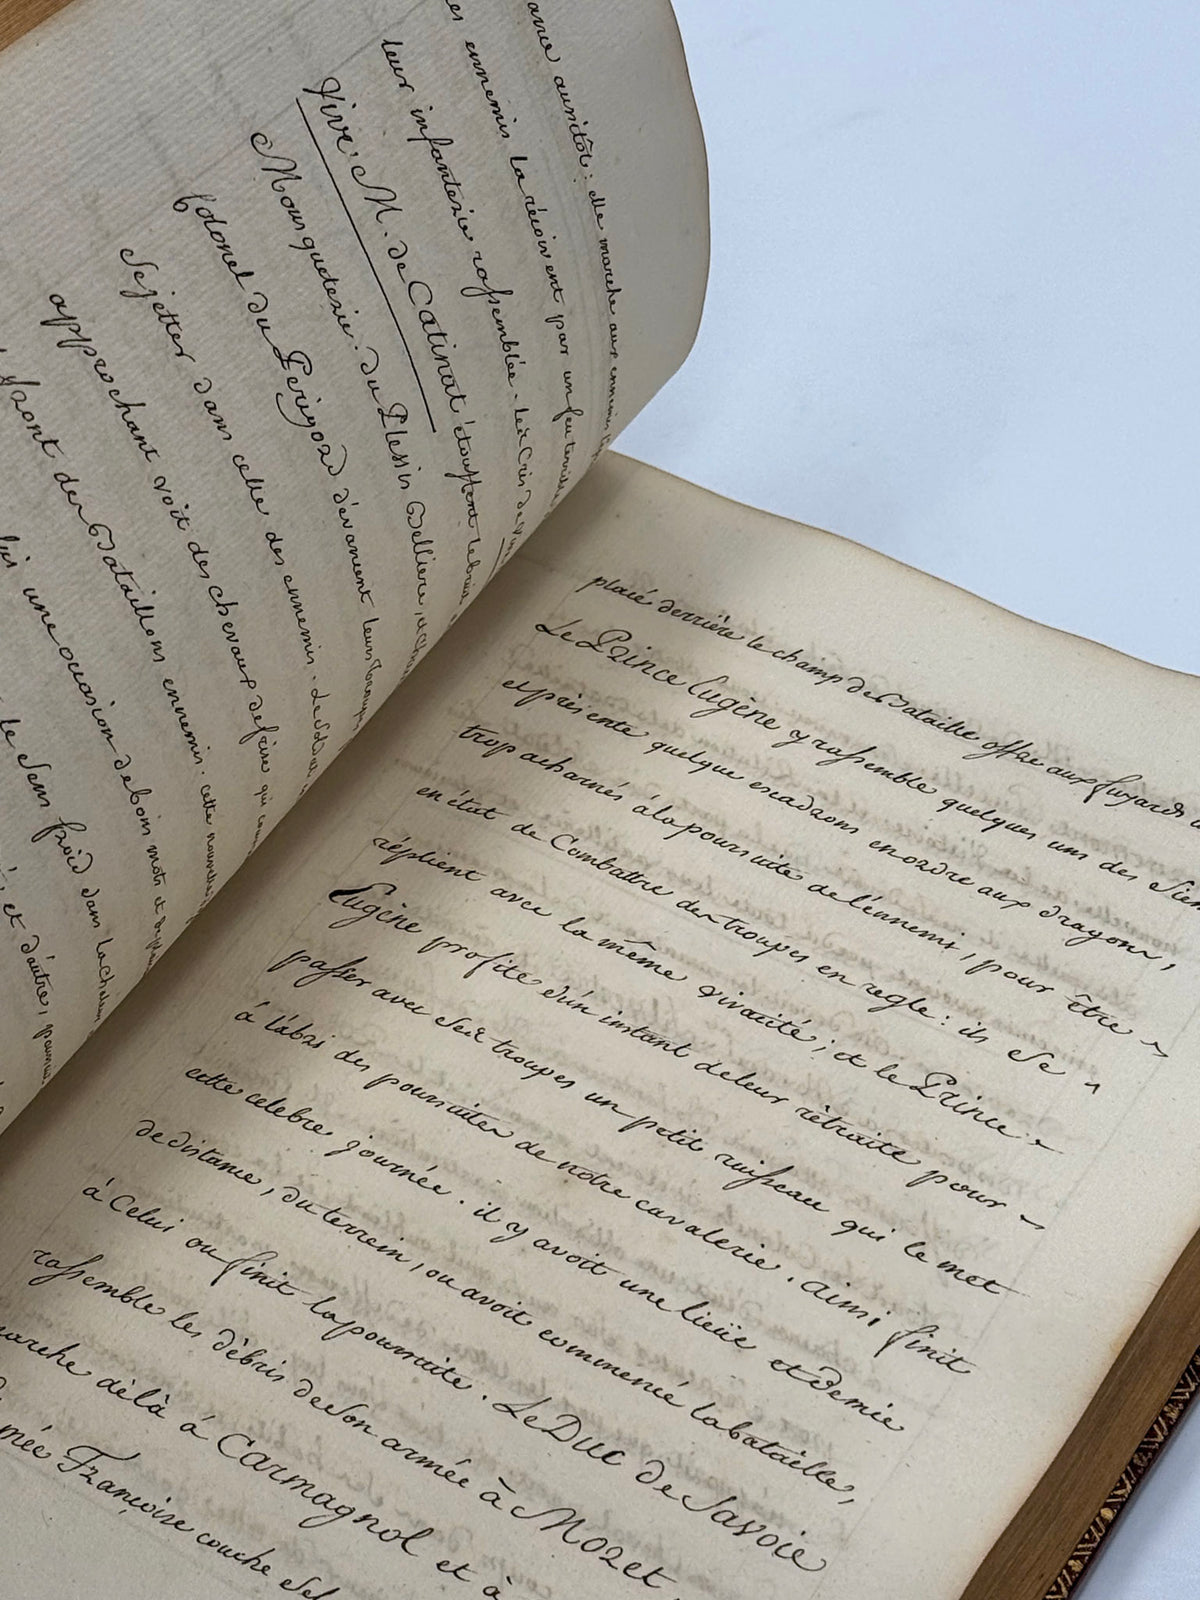 aussitôt : elle marche aux ennemis
ennemis la réçoivent par un feu terrible
leur infanterie rassemblée . les Cris de
Vive . M . de Catinat étouffent le bruit
Mousquéterie . du Plessis Belliere ,
Colonel du Périgord dévancent leurs troupes
Se jetter dans celle des ennemis . Le Soldat
approchant voit des chevaux de frise qui
front des Bataillons ennemis . cette nouvelle
une occasion de bons mots et
le Sens froid dans la
et d'autre ,
placé derrière le champ de Bataille offre aux fuyards
Le Prince Eugène y rassemble quelques uns des Siens
et présente quelque escadrons en ordre aux dragons ,
trop acharnés à la poursuite de l'énnemi , pour être ~
en état de Combattre des troupes en regle : ils Se ~
réplient avec la même vivacité ; et le Prince ~
Eugène profite d'un instant de leur rétraite pour ~
passer avec Ses troupes un petit ruisseau qui le met
à l'abri des poursuites de notre cavalerie . ainsi finit
cette celebre journée . il y avoit une lieüe et demie
de distance , du terrein , ou avoit commencé la bataille ,
à Celui ou finit la poursuite . Le DUC de Savoie
rassemble les débris de Son armée à Moret
marche délà á Carmagnol et à
Françoise couche